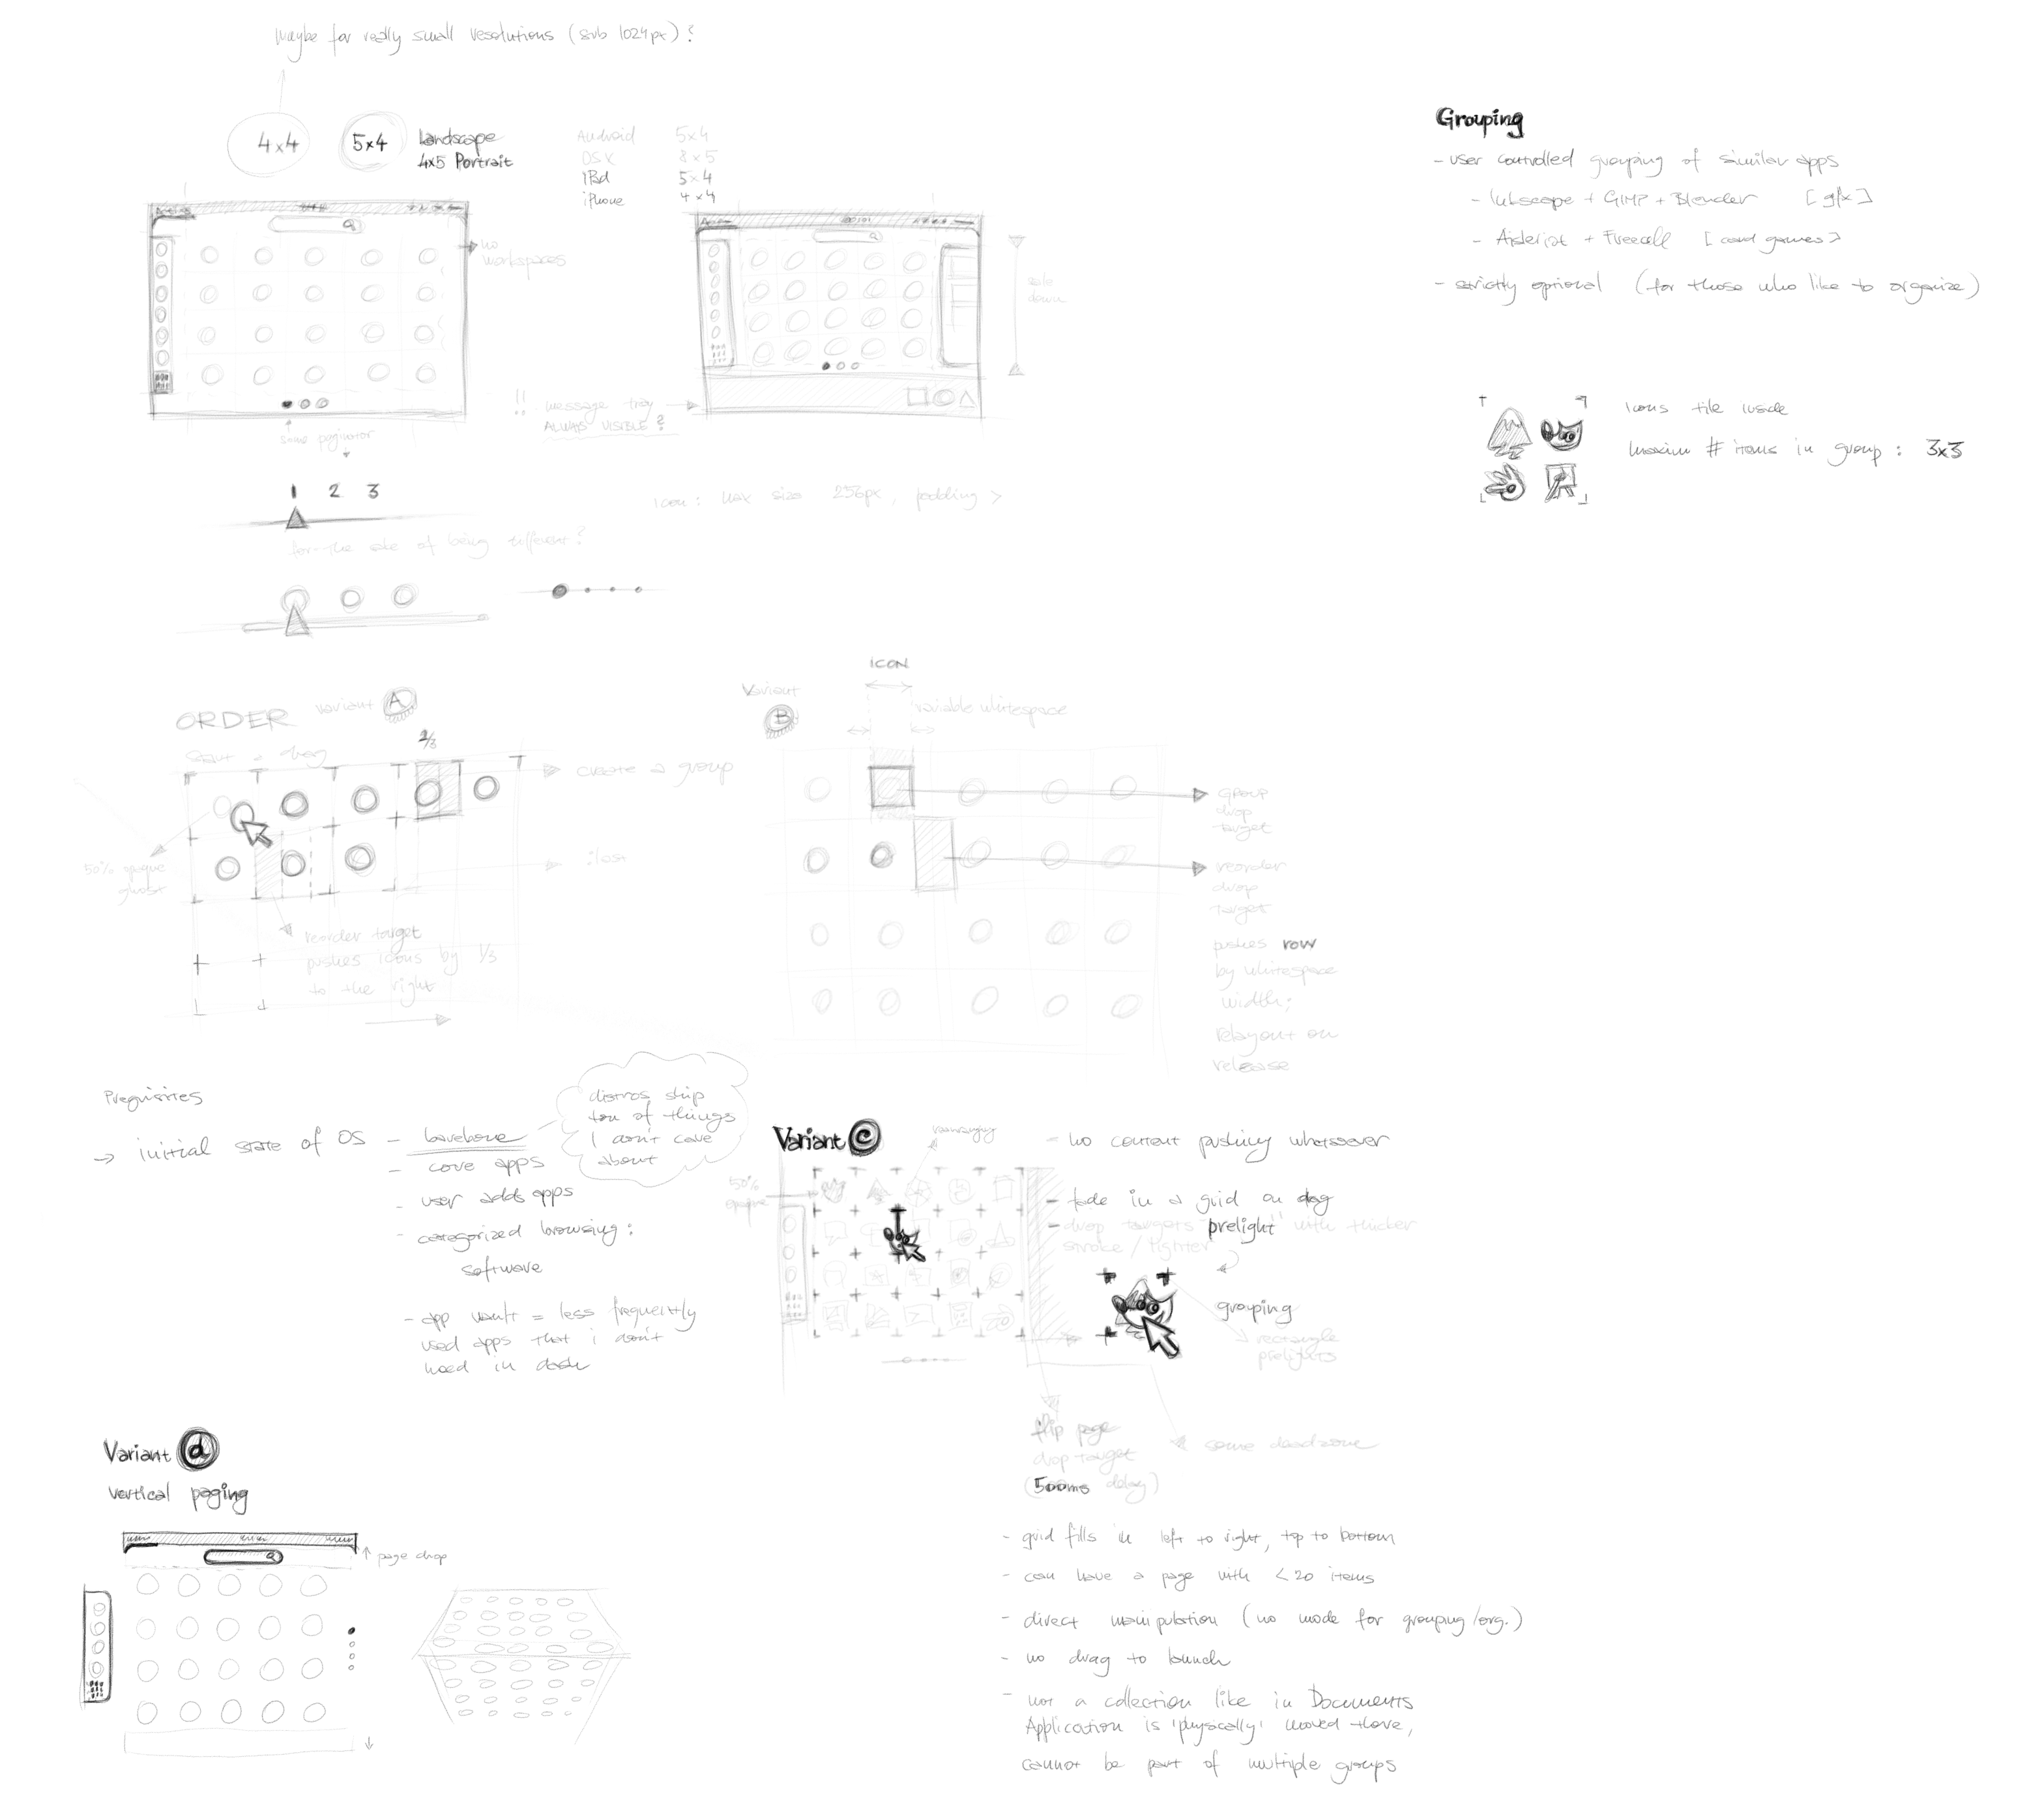 Maybe for really small resolutions (sub 1024px)?
4x4
5x4
Landscape
4x5 Portrait
Android 5x4
OSX 8x5
iPad 5x4
iPhone 4x4
no
workspaces
scale
down
some paginator
!! message tray
ALWAYS VISIBLE?
1 2 3
for the sake of being different?
icon: max size 256px, padding >
Grouping
- user controlled grouping of similar apps
- Inkscape + GIMP + Blender [gfx]
- Aisleriot + Freecell [card games]
- strictly optional (for those who like to organize)
icons tile inside
maxim # items in group: 3x3
ORDER variant A
start a drag
2/3
create a group
50% opaque
ghost
reorder target
pushes icons by 1/3
to the right
Variant
B
ICON
variable whitespace
group
drop
target
reorder
drop
target
pushes row
by whitespace
width;
relayout on
release
→ initial state of OS - barebone
- core apps
- user adds apps
- categorized browsing:
software
- app vault = less frequently
used apps that i don't
need in dash
distros ship
ton of things
I don't care
about
Variant C
rearranging
50%
opaque
- no content pushing whatsoever
- fade in a grid on drag
- drop targets 'prelight' with thicker
stroke / lighter
grouping
rectangle
prelights
flip page
drop target
(500ms delay)
some deadzone
- grid fills in left to right, top to bottom
- can have a page with <20 items
- direct manipulation (no mode for grouping/org.)
- no drag to launch
- not a collection like in Documents
Application is 'physically' moved there,
cannot be part of multiple groups
Variant d
vertical paging
page drop